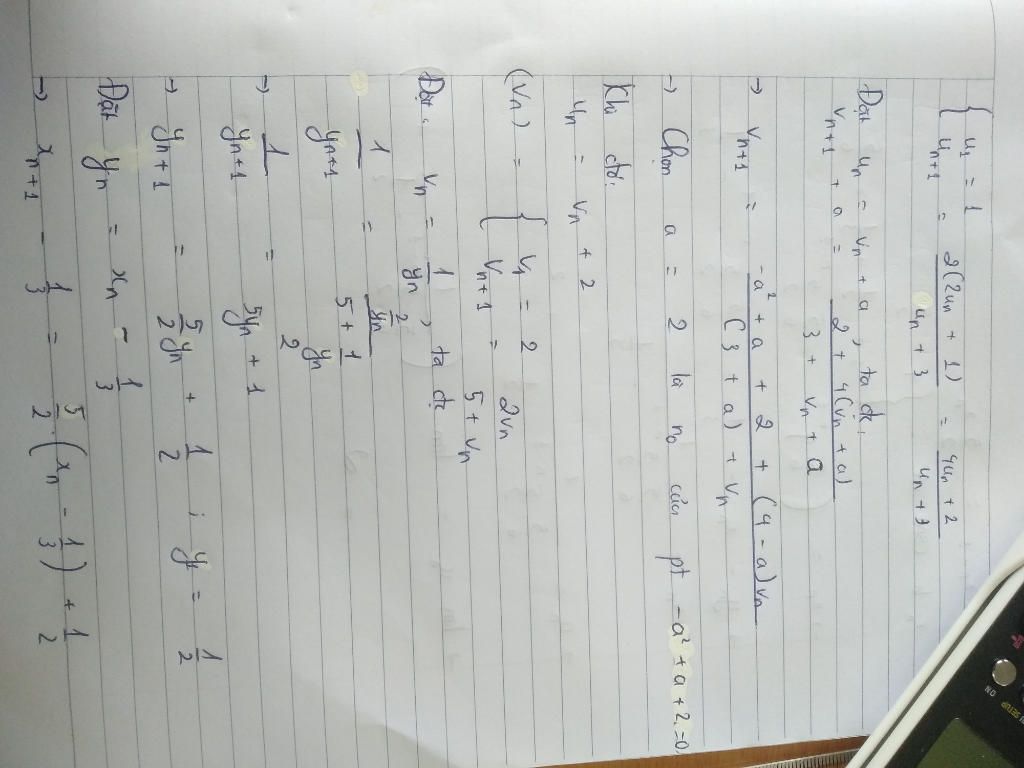 { u₁ = 1
u_{n+1} = 2(2u_n + 1) / (u_n + 3) = (4u_n + 2) / (u_n + 3)
Đặt u_n = v_n + a, ta đc.
v_{n+1} + a = (2 + 4(v_n + a)) / (3 + v_n + a)
→ v_{n+1} = (-a² + a + 2 + (4 - a)v_n) / ((3 + a) + v_n)
→ Chọn a = 2 là n₀ của pt -a² + a + 2 = 0
Khi đó:
u_n = v_n + 2
(v_n) = { v₁ = 2
v_{n+1} = 2v_n / (5 + v_n)
Đặt: v_n = 1/y_n, ta đc
1/y_{n+1} = (2/y_n) / (5 + 1/y_n)
→ 1/y_{n+1} = 2 / (5y_n + 1)
→ y_{n+1} = 5/2 y_n + 1/2 ; y = 1/2
Đặt y_n = x_n - 1/3
→ x_{n+1} - 1/3 = 5/2 . (x_n - 1/3) + 1/2
ON
SETUP